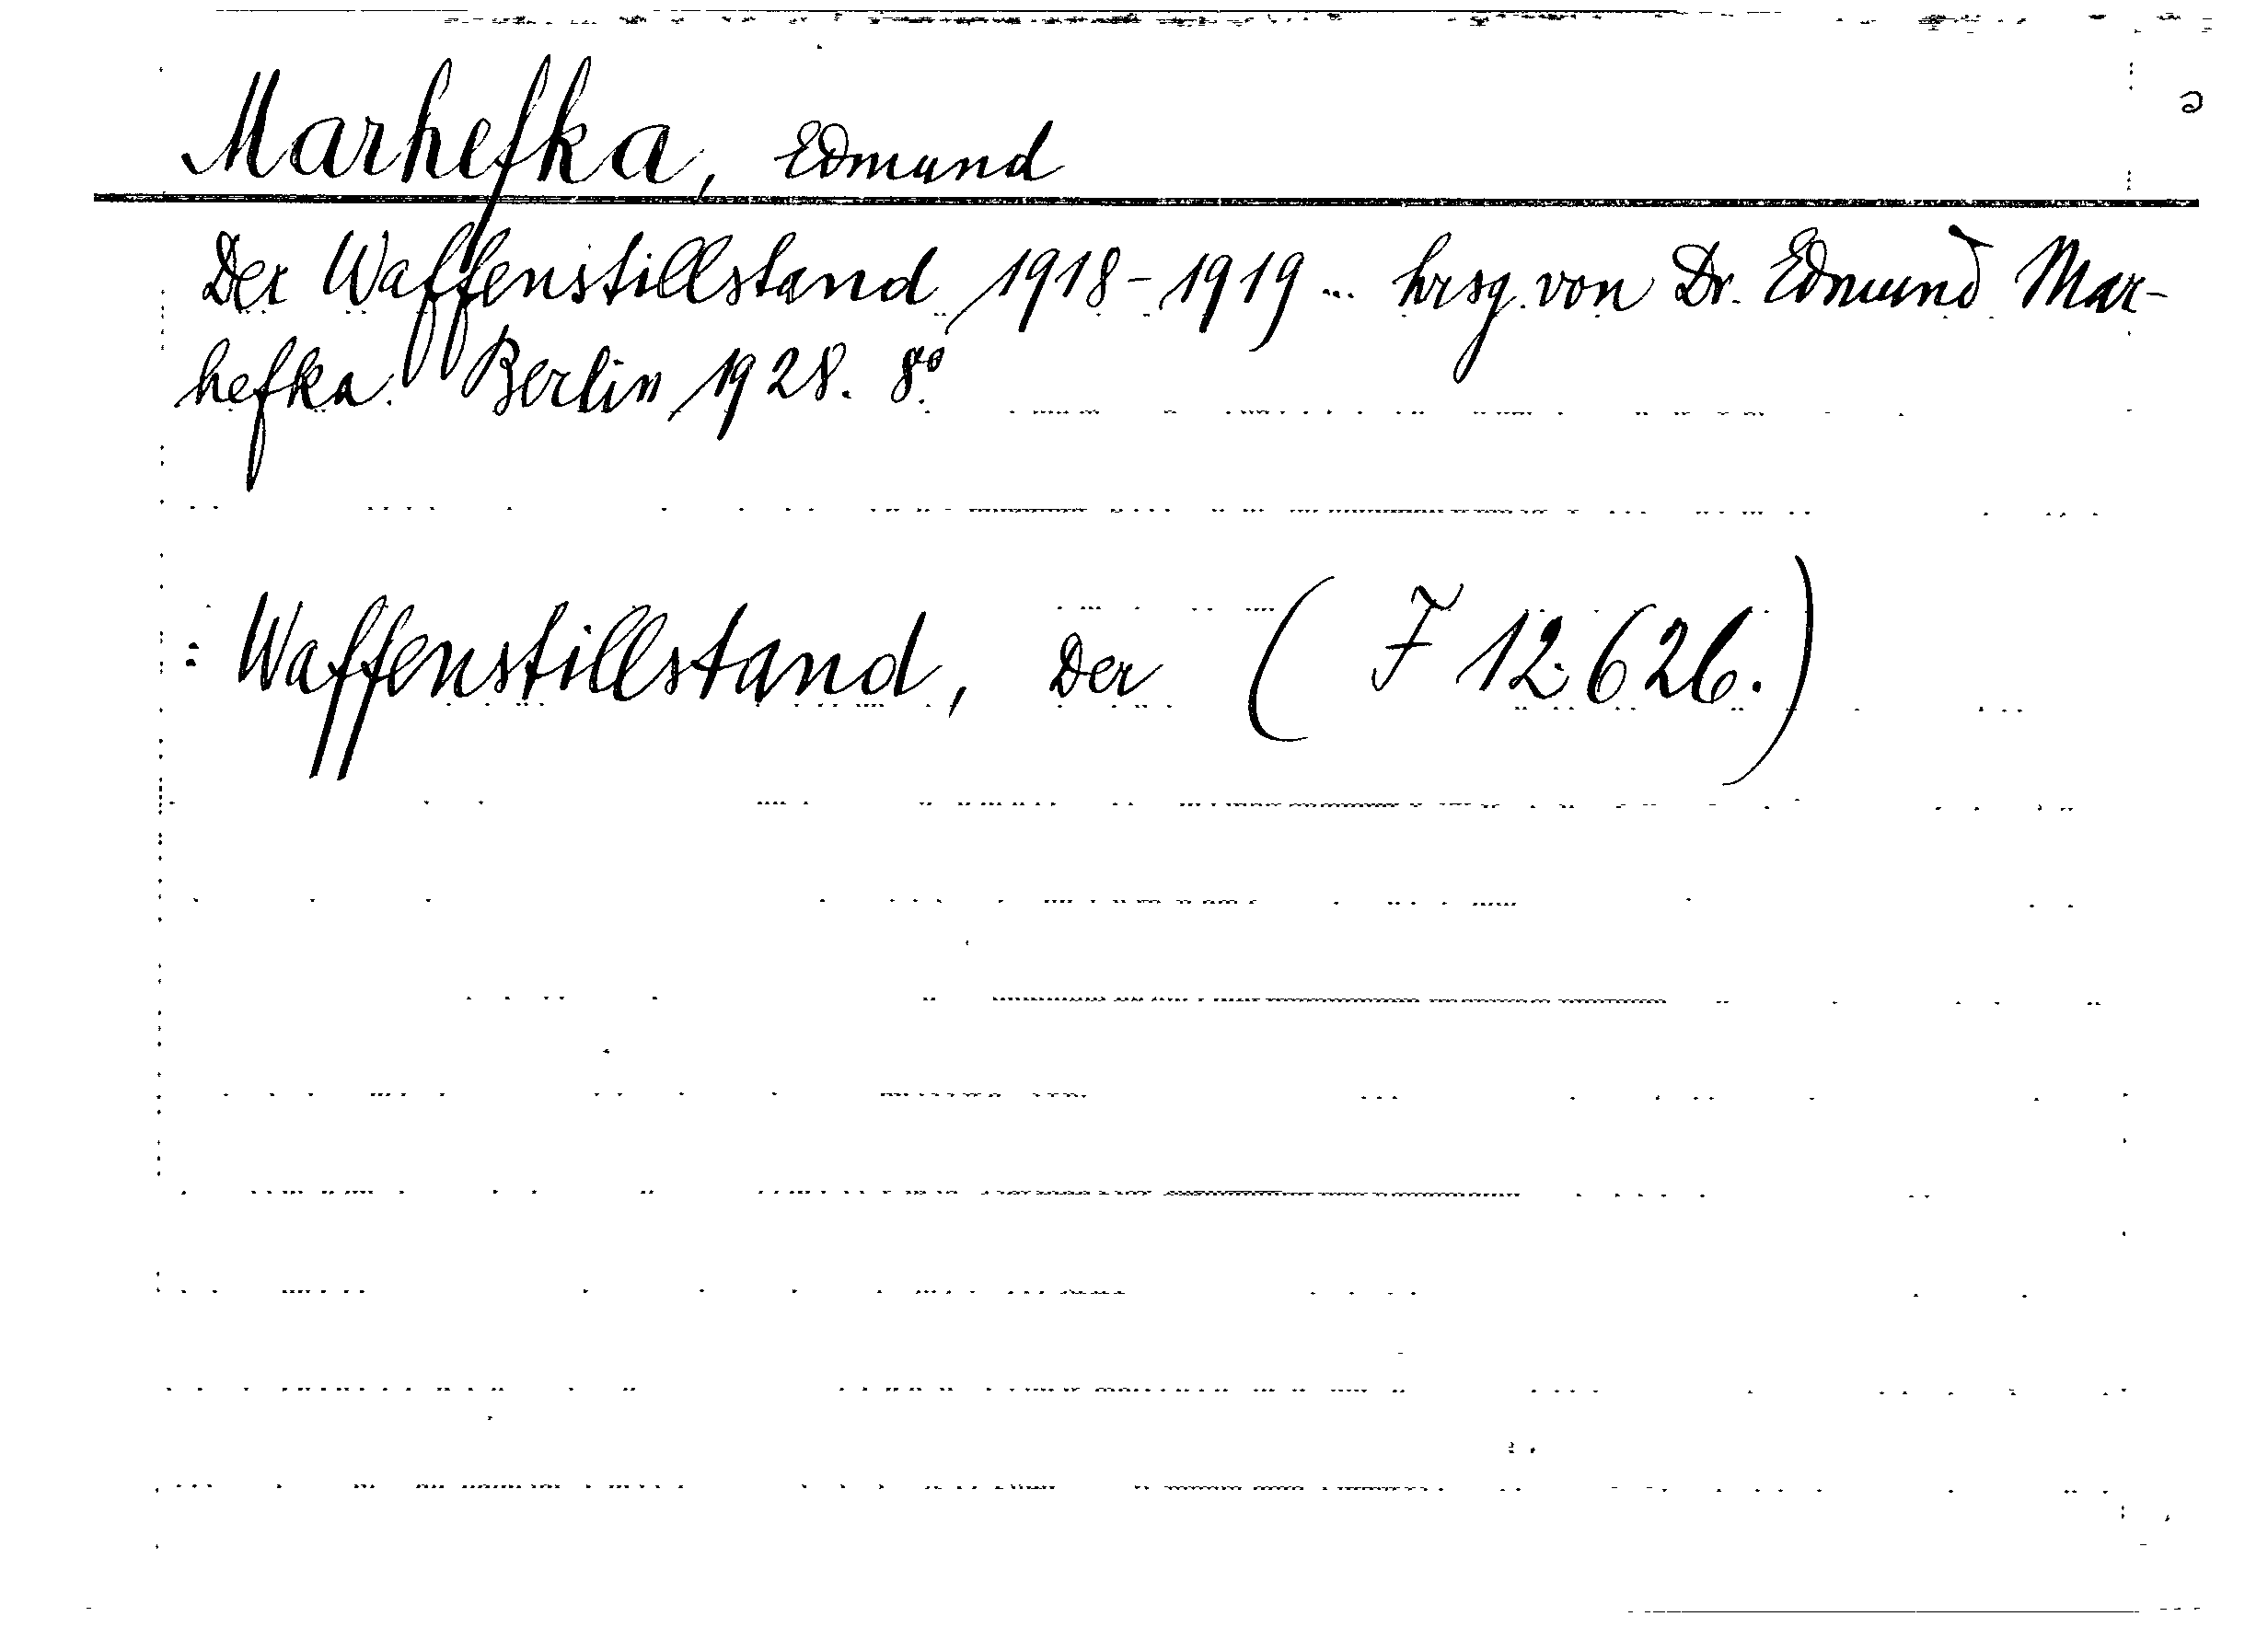 Marhefka, Edmund
Der Waffenstillstand 1918-1919 ... hrsg. von Dr. Edmund Mar-
hefka. Berlin 1928. 8°.
: Waffenstillstand, Der ( F 12.626.)